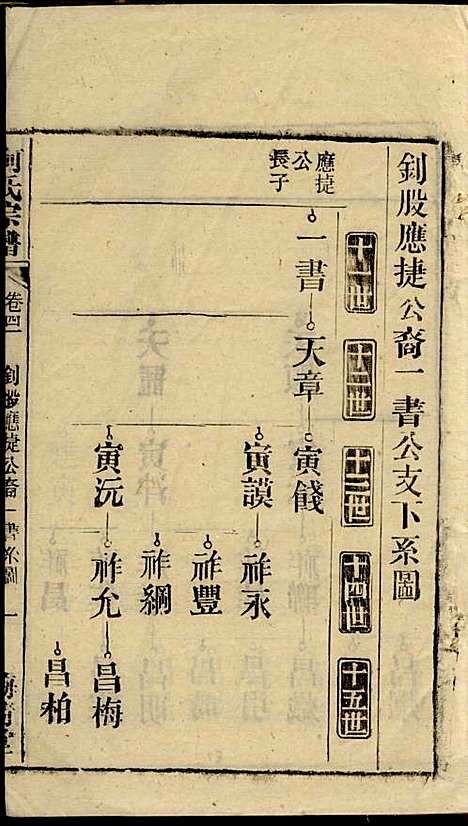 釗股應捷公裔一書公支下系圖
十一世
十二世
十三世
十四世
十五世
應捷
公
長子
一書
天章
寅餞
寅謨
祚永
祚豐
祚綱
寅沅
祚允
昌梅
昌柏
氏宗譜
卷四
釗股應捷公裔一書系圖
一